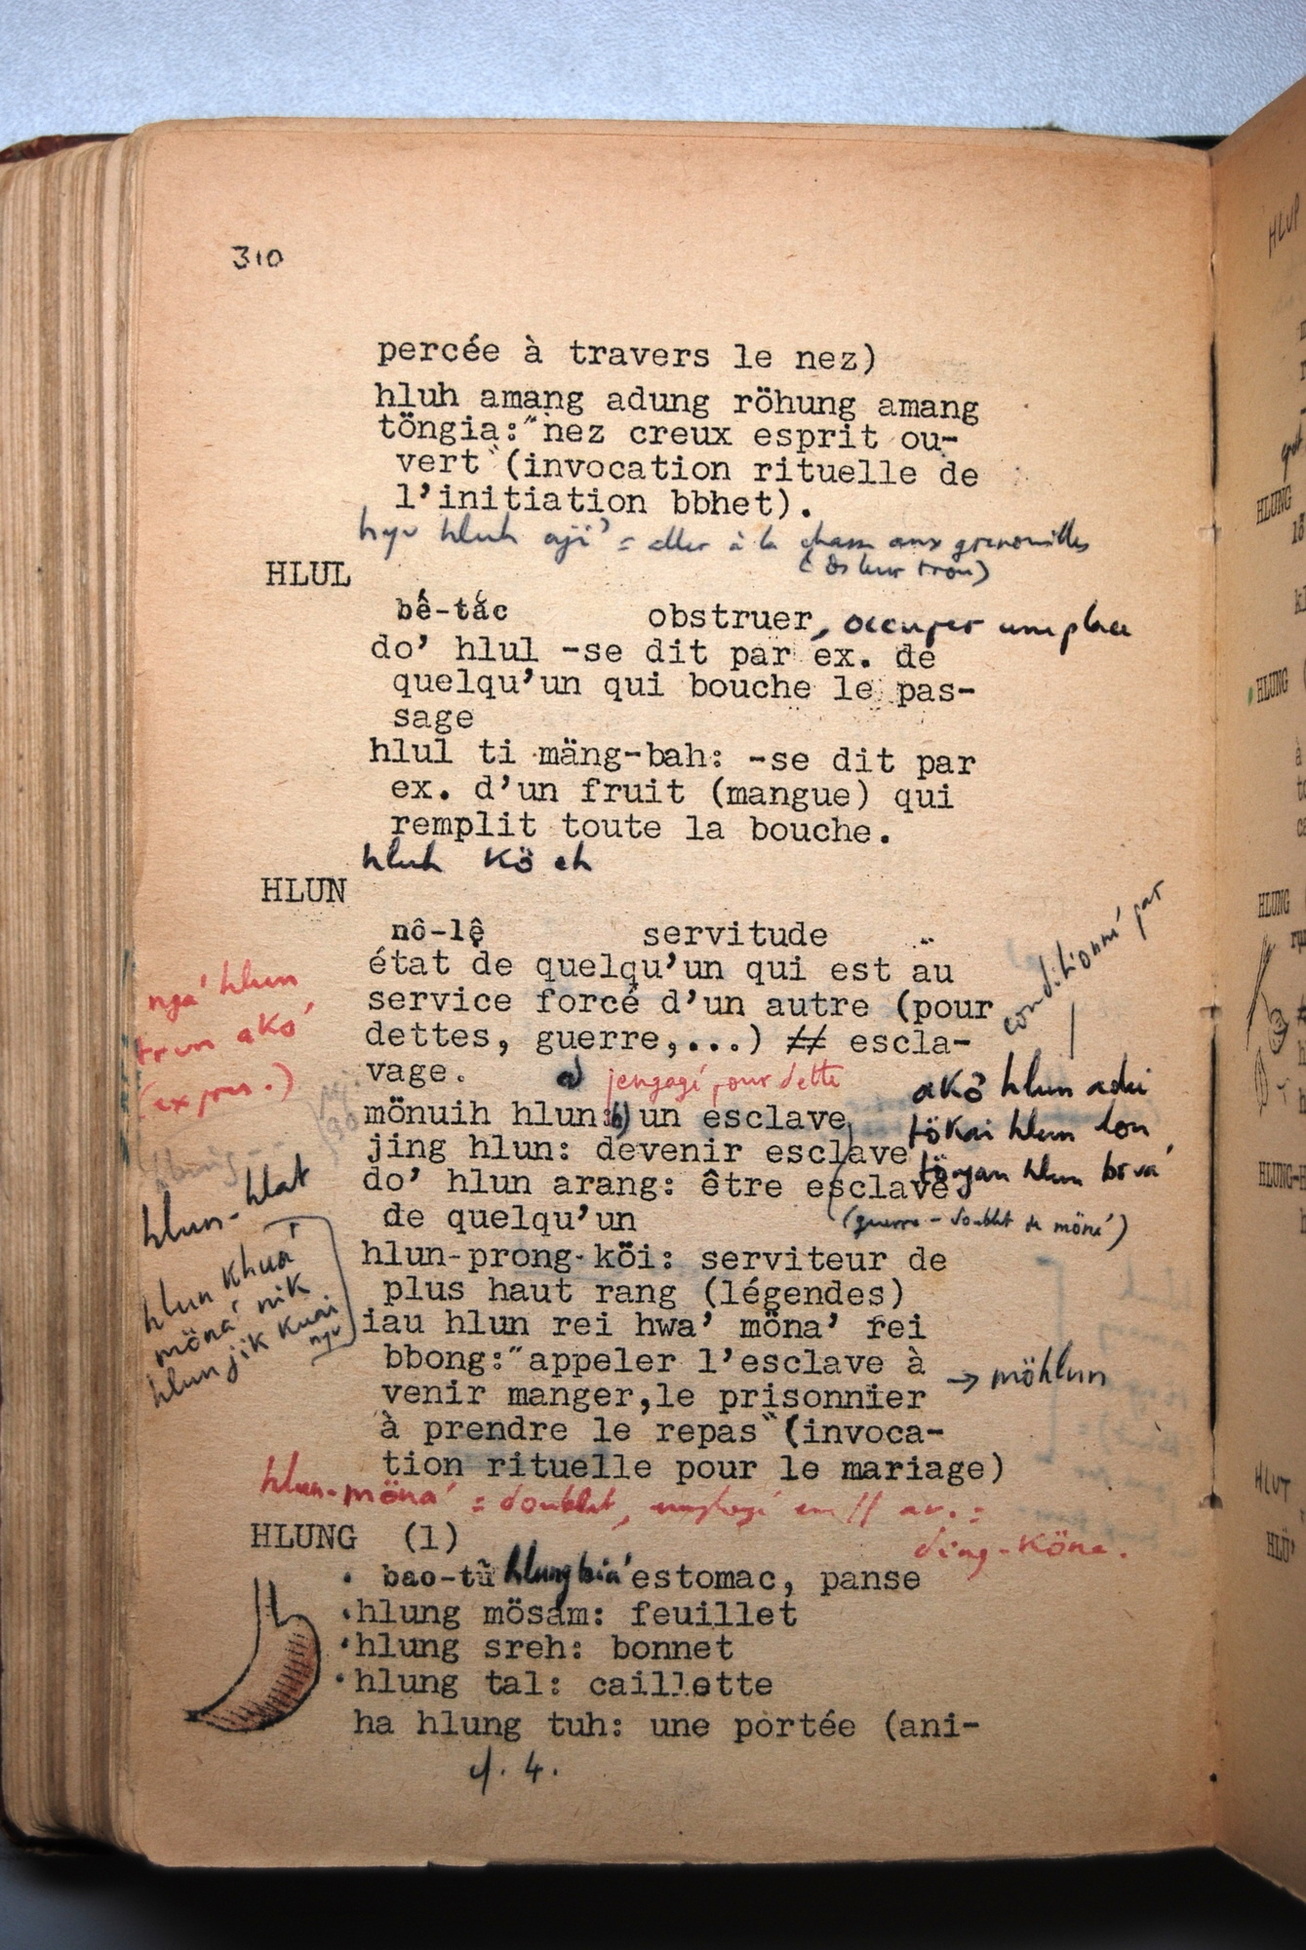 310
percée à travers le nez)
hluh amang adung röhung amang
töngia:"nez creux esprit ou-
vert"(invocation rituelle de
l'initiation bbhet).
hyu hluh aji' = aller à la chasse aux grenouilles
(ds leur trou)
HLUL
bế-tắc obstruer, occuper une place
do' hlul -se dit par ex. de
quelqu'un qui bouche le pas-
sage
hlul ti mäng-bah: -se dit par
ex. d'un fruit (mangue) qui
remplit toute la bouche.
hluh kö eh
HLUN
nô-lệ servitude
état de quelqu'un qui est au
service forcé d'un autre (pour
dettes, guerre,...) ≠ escla-
vage.
conditionné par
ngá hlun
trun akó
(expres.)
a) engagé pour dette
mönuih hlun: b) un esclave
jing hlun: devenir esclave
do' hlun arang: être esclave
de quelqu'un
akö hlun adei
tökai hlun don
töngan hlun bová
(guerre - doublet de möná)
hlun-hlat
hlun khuá
möná nik
hlun jik kuai
ngu
hlun-prong-köi: serviteur de
plus haut rang (légendes)
iau hlun rei hwa' möna' rei
bbong:"appeler l'esclave à
venir manger,le prisonnier
à prendre le repas"(invoca-
tion rituelle pour le mariage)
→ möhlun
hlun-möná = doublet, employé en // av. =
ding-köna.
HLUNG (1)
bao-tử hlung biá estomac, panse
hlung mösam: feuillet
hlung sreh: bonnet
hlung tal: caillette
ha hlung tuh: une portée (ani-
cf. 4.
HLUP
HLUNG
HLUNG
HLUNG
HLUNG-H
HLUT